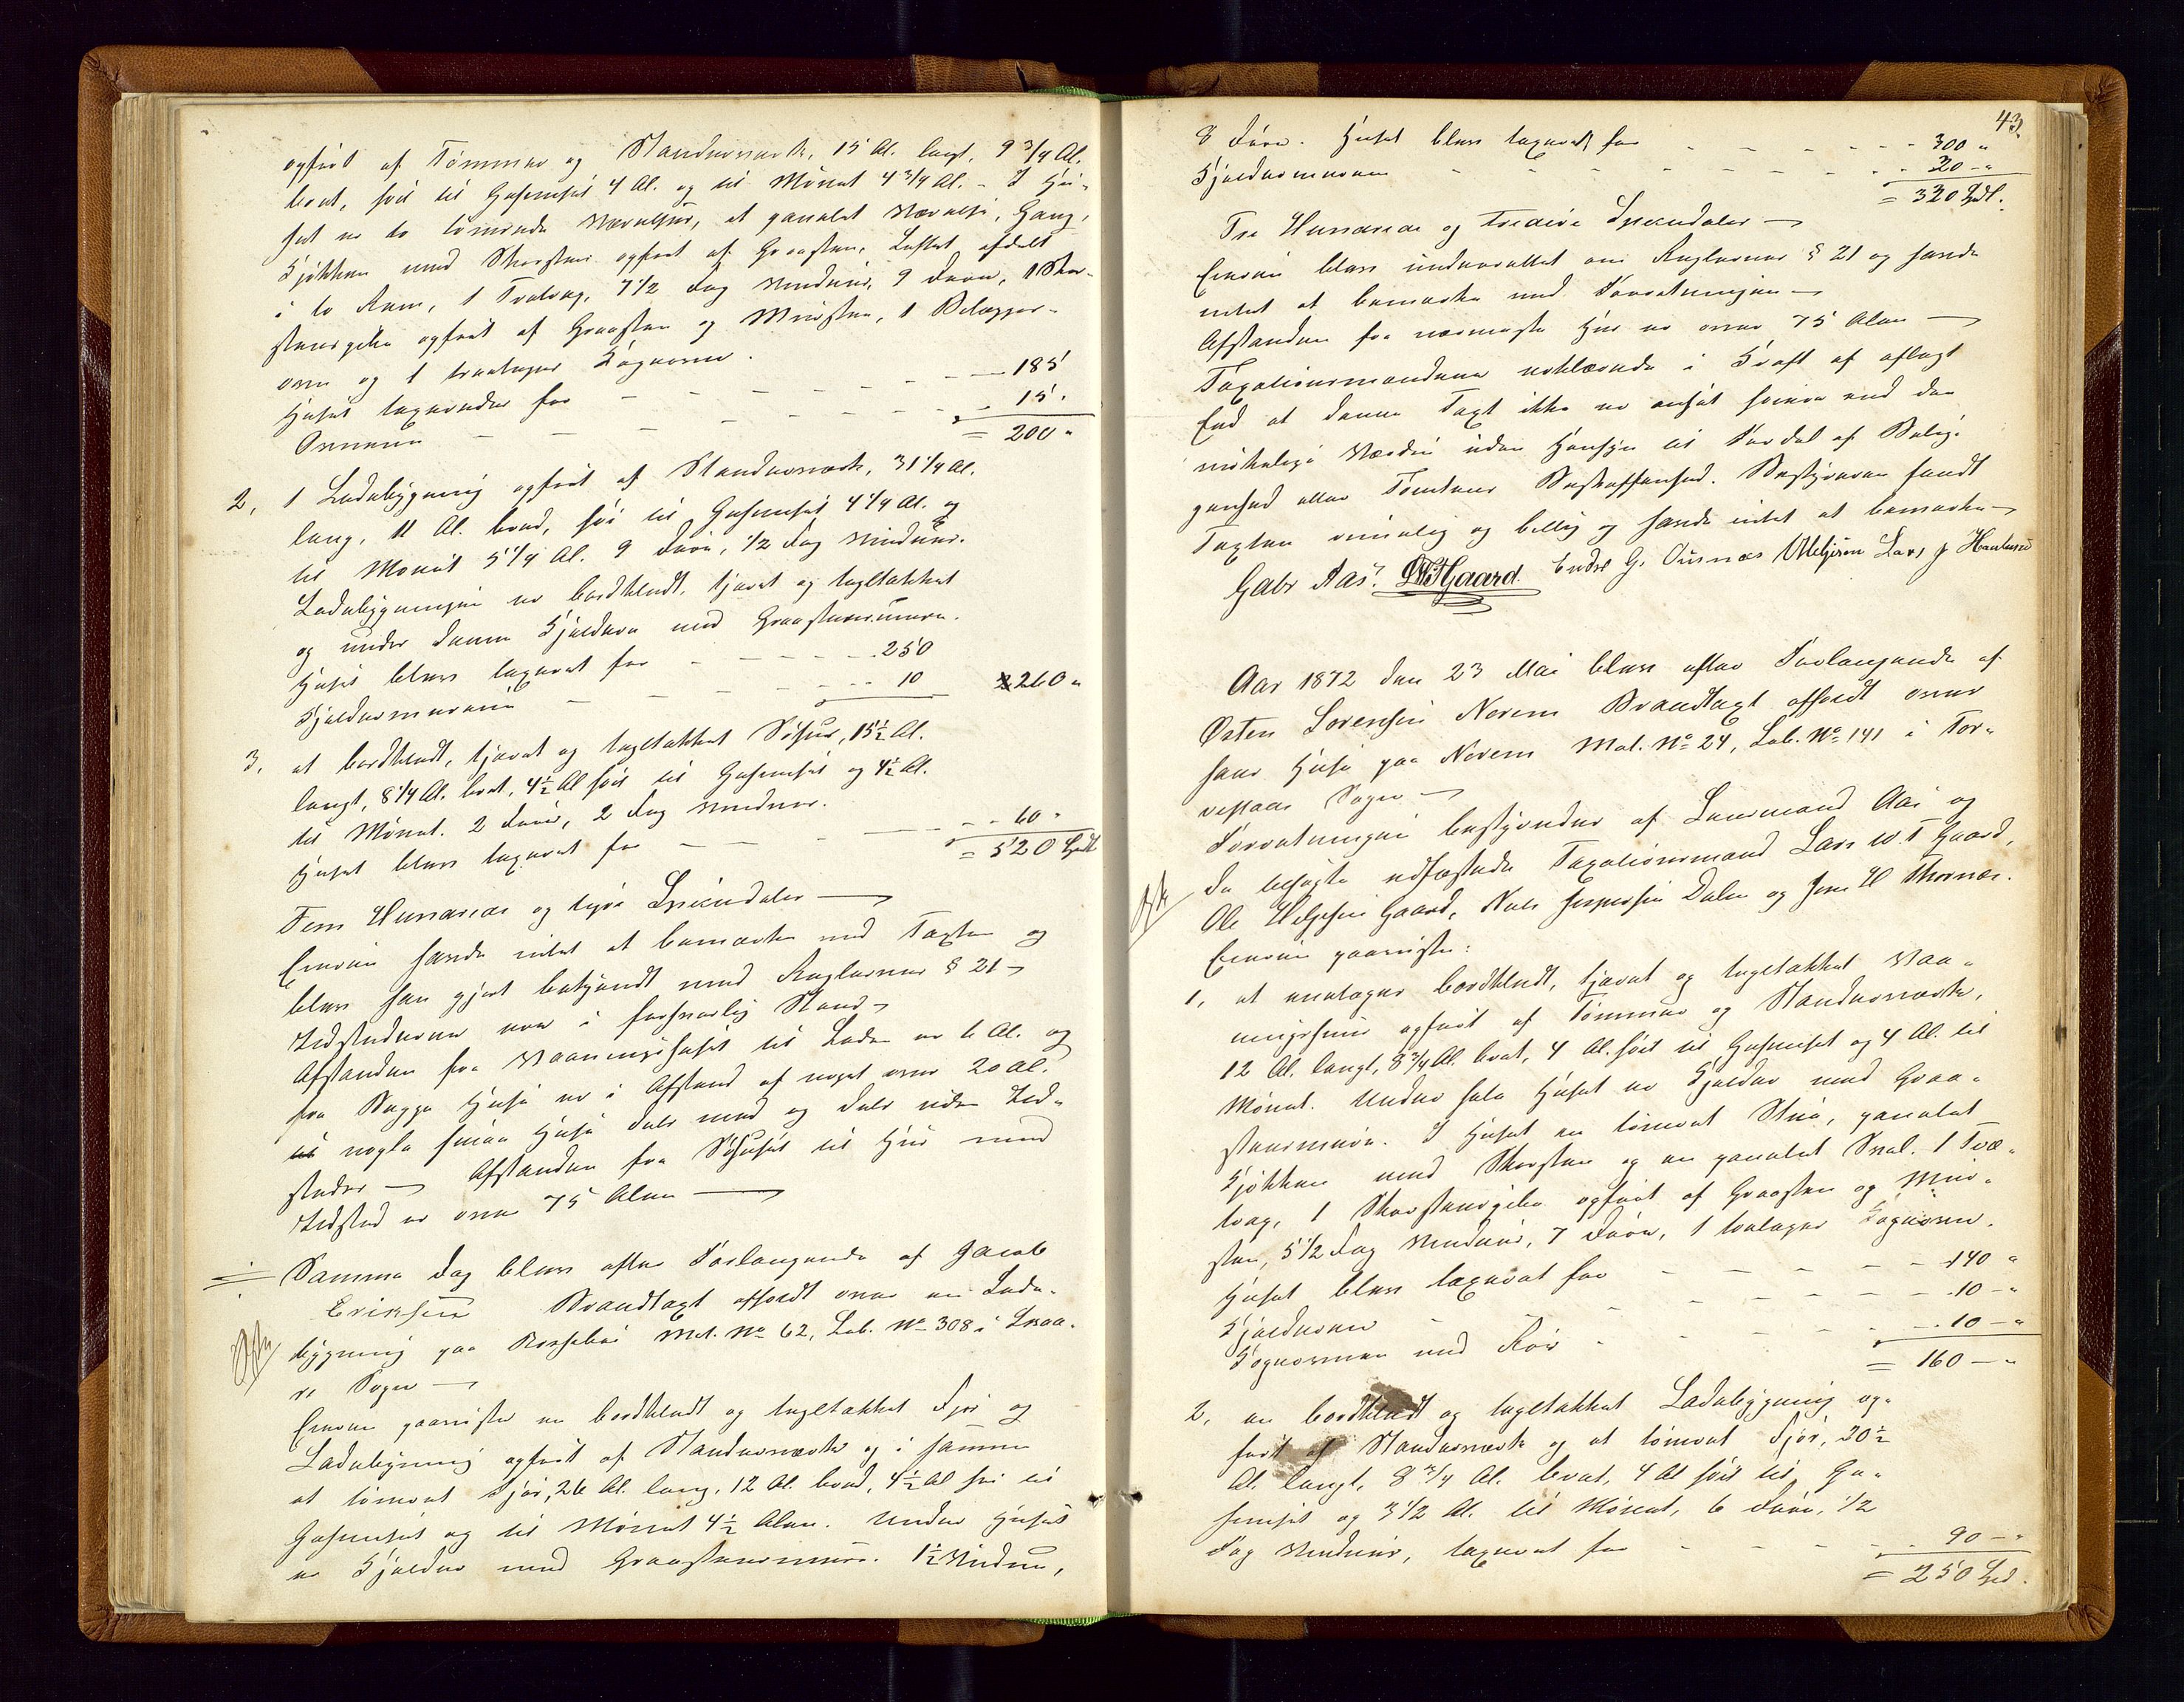 opført af Tømmer og Standerværk, 15 Al. langt, 9 3/4 Al.
bredt, høit til Gesimset 4 Al. og til Mønet 4 3/4 Al. - I Hu-
set er to tømrede Værelser, et panelet Værelse, Gang,
Kjøkken med Skorsten opført af Graasten, Loftet afdelt
i to Rum, 1 Trætrap, 7 1/2 Fag Vinduer, 9 Døre, 1 Skor-
stenspibe opført af Graasten og Mursten, 1 Bilægger-
ovn og 1 treetages Kogeovn.
Huset taxeredes for - - - - - - 185
Ovnene - - - - - - 15.
= 200 "
2, 1 Ladebygning opført af Standerværk, 31 1/4 Al.
lang, 11 Al. bred, høi til Gesimset 4 1/4 Al. og
til Mønet 5 1/4 Al. 9 Døre, 1/2 Fag Vinduer.
Ladebygningen er bordklædt, tjæret og tegltækket
og under denne Kjelder med Graastensmure.
Huset blev taxeret for - - - - 250
Kjeldermurene - - - - 10 260 "
3, et bordklædt, tjæret og tegltækket Søhus, 15 1/2 Al.
langt, 8 1/4 Al. bredt, 4 1/2 Al høit til Gesimset og 4 1/2 Al.
til Mønet. 2 Døre, 2 Fag Vinduer.
Huset blev taxeret for - - - - 60 "
= 520 Spdl
Fem Hundrede og tyve Speciedaler
Eieren havde intet at bemærke med Taxten og
blev han gjort bekjendt med Reglernes § 21
Ildstederne var i forsvarlig Stand
Afstanden fra Vaaningshuset til Laden er 6 Al. og
fra begge Huse er i Afstand af noget over 20 Al.
til nogle smaa Huse dels med og dels uden Ild-
steder - Afstanden fra Søhuset til Hus med
Ildsted er over 75 Alen
Samme Dag blev efter Forlangende af Jacob
Eriksen Brandtaxt afholdt over en Lade-
bygning paa Mat. No 62, Løb. No 308 i Skaa-
re Sogn
Eieren paaviste en bordklædt og tegltækket Fjøs og
Ladebygning opført af Standerværk og i samme
et tømret Fjøs, 26 Al. lang, 12 Al. bred, 4 1/2 Al høi til
Gesimset og til Mønet 4 1/2 Alen. Under Huset
er Kjelder med Graastensmure. 1 1/2 Vindue,
43.
8 Døre. Huset blev taxeret for - - - - 300 "
Kjeldermuren - - - - 20 - "
= 320 Spdl.
Tre Hundrede og tredive Speciedaler
Eieren blev underrettet om Reglernes § 21 og havde
intet at bemærke med Forretningen
Afstanden fra nærmeste Hus er over 75 Alen
Taxationsmændene erklærede i Kraft af aflagt
Eed at denne Taxt ikke er ansat høiere end den
virkelige Værdi uden Hensyn til Fordel af Belig-
genhed eller Tomtens Beskaffenhed. Bestyreren fandt
Taxten rimelig og billig og havde intet at bemærke
Gabr Aas. LWTGaard Endre G. Ousnæs Lars J
Aar 1872 den 23 Mai blev efter Forlangende af
Østen Sørensen Norem Brandtaxt afholdt over
hans Huse paa Norem Mat. No 24, Løb. No 141 i Tor-
vestad Sogn
Forretningen bestyredes af Lensmand Aas og
de besøgte edfæstede Taxationsmænd Lars W. T Gaard,
Ole Helgesen Gaard, Nels Jespersen Dale og Jens H Thornæs.
Eieren paaviste:
1, et eenetages bordklædt, tjæret og tegltækket Vaa-
ningshuus opført af Tømmer og Standerværk,
12 Al. langt, 8 3/4 Al. bredt, 4 Al. høit til Gesimset og 4 Al. til
Mønet. Under hele Huset er Kjelder med Graa-
stensmure. I Huset en tømret Stue, panelet
Kjøkken med Skorsten og en panelet Sval. 1 Træ-
trap, 1 Skorstenspibe opført af Graasten og Mur-
sten, 5 1/2 Fag Vinduer, 7 Døre, 1 toetages Kogeovn.
Huset blev taxeret for - - - - 140 "
Kjelderen - - - - 10 - "
Kogeovnen med Rør - - - - 10 - "
= 160 - "
2, en bordklædt og tegltækket Ladebygning op-
ført af Standerværk og et tømret Fjøs, 20 1/2
Al. langt, 8 3/4 Al. bredt, 4 Al høit til Ge-
simset og 3 1/2 Al. til Mønet, 6 Døre, 1/2
Fag Vinduer, taxeret for - - - - 90 - "
= 250 Spd.